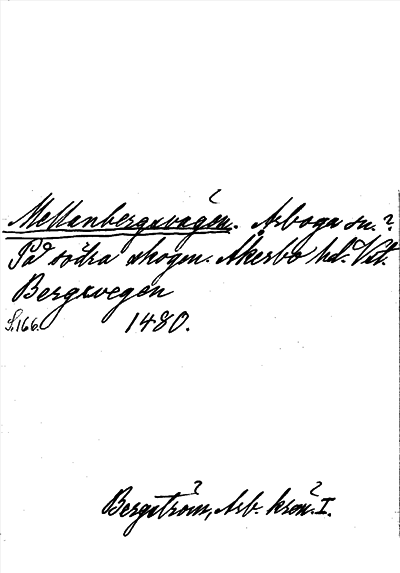 Mellanbergsvägen. Arboga sn.?
På södra skogen. Åkerbo hd. Vstm.
Bergsvegen
S. 166. 1480.
Bergström, Arb. krön. I.